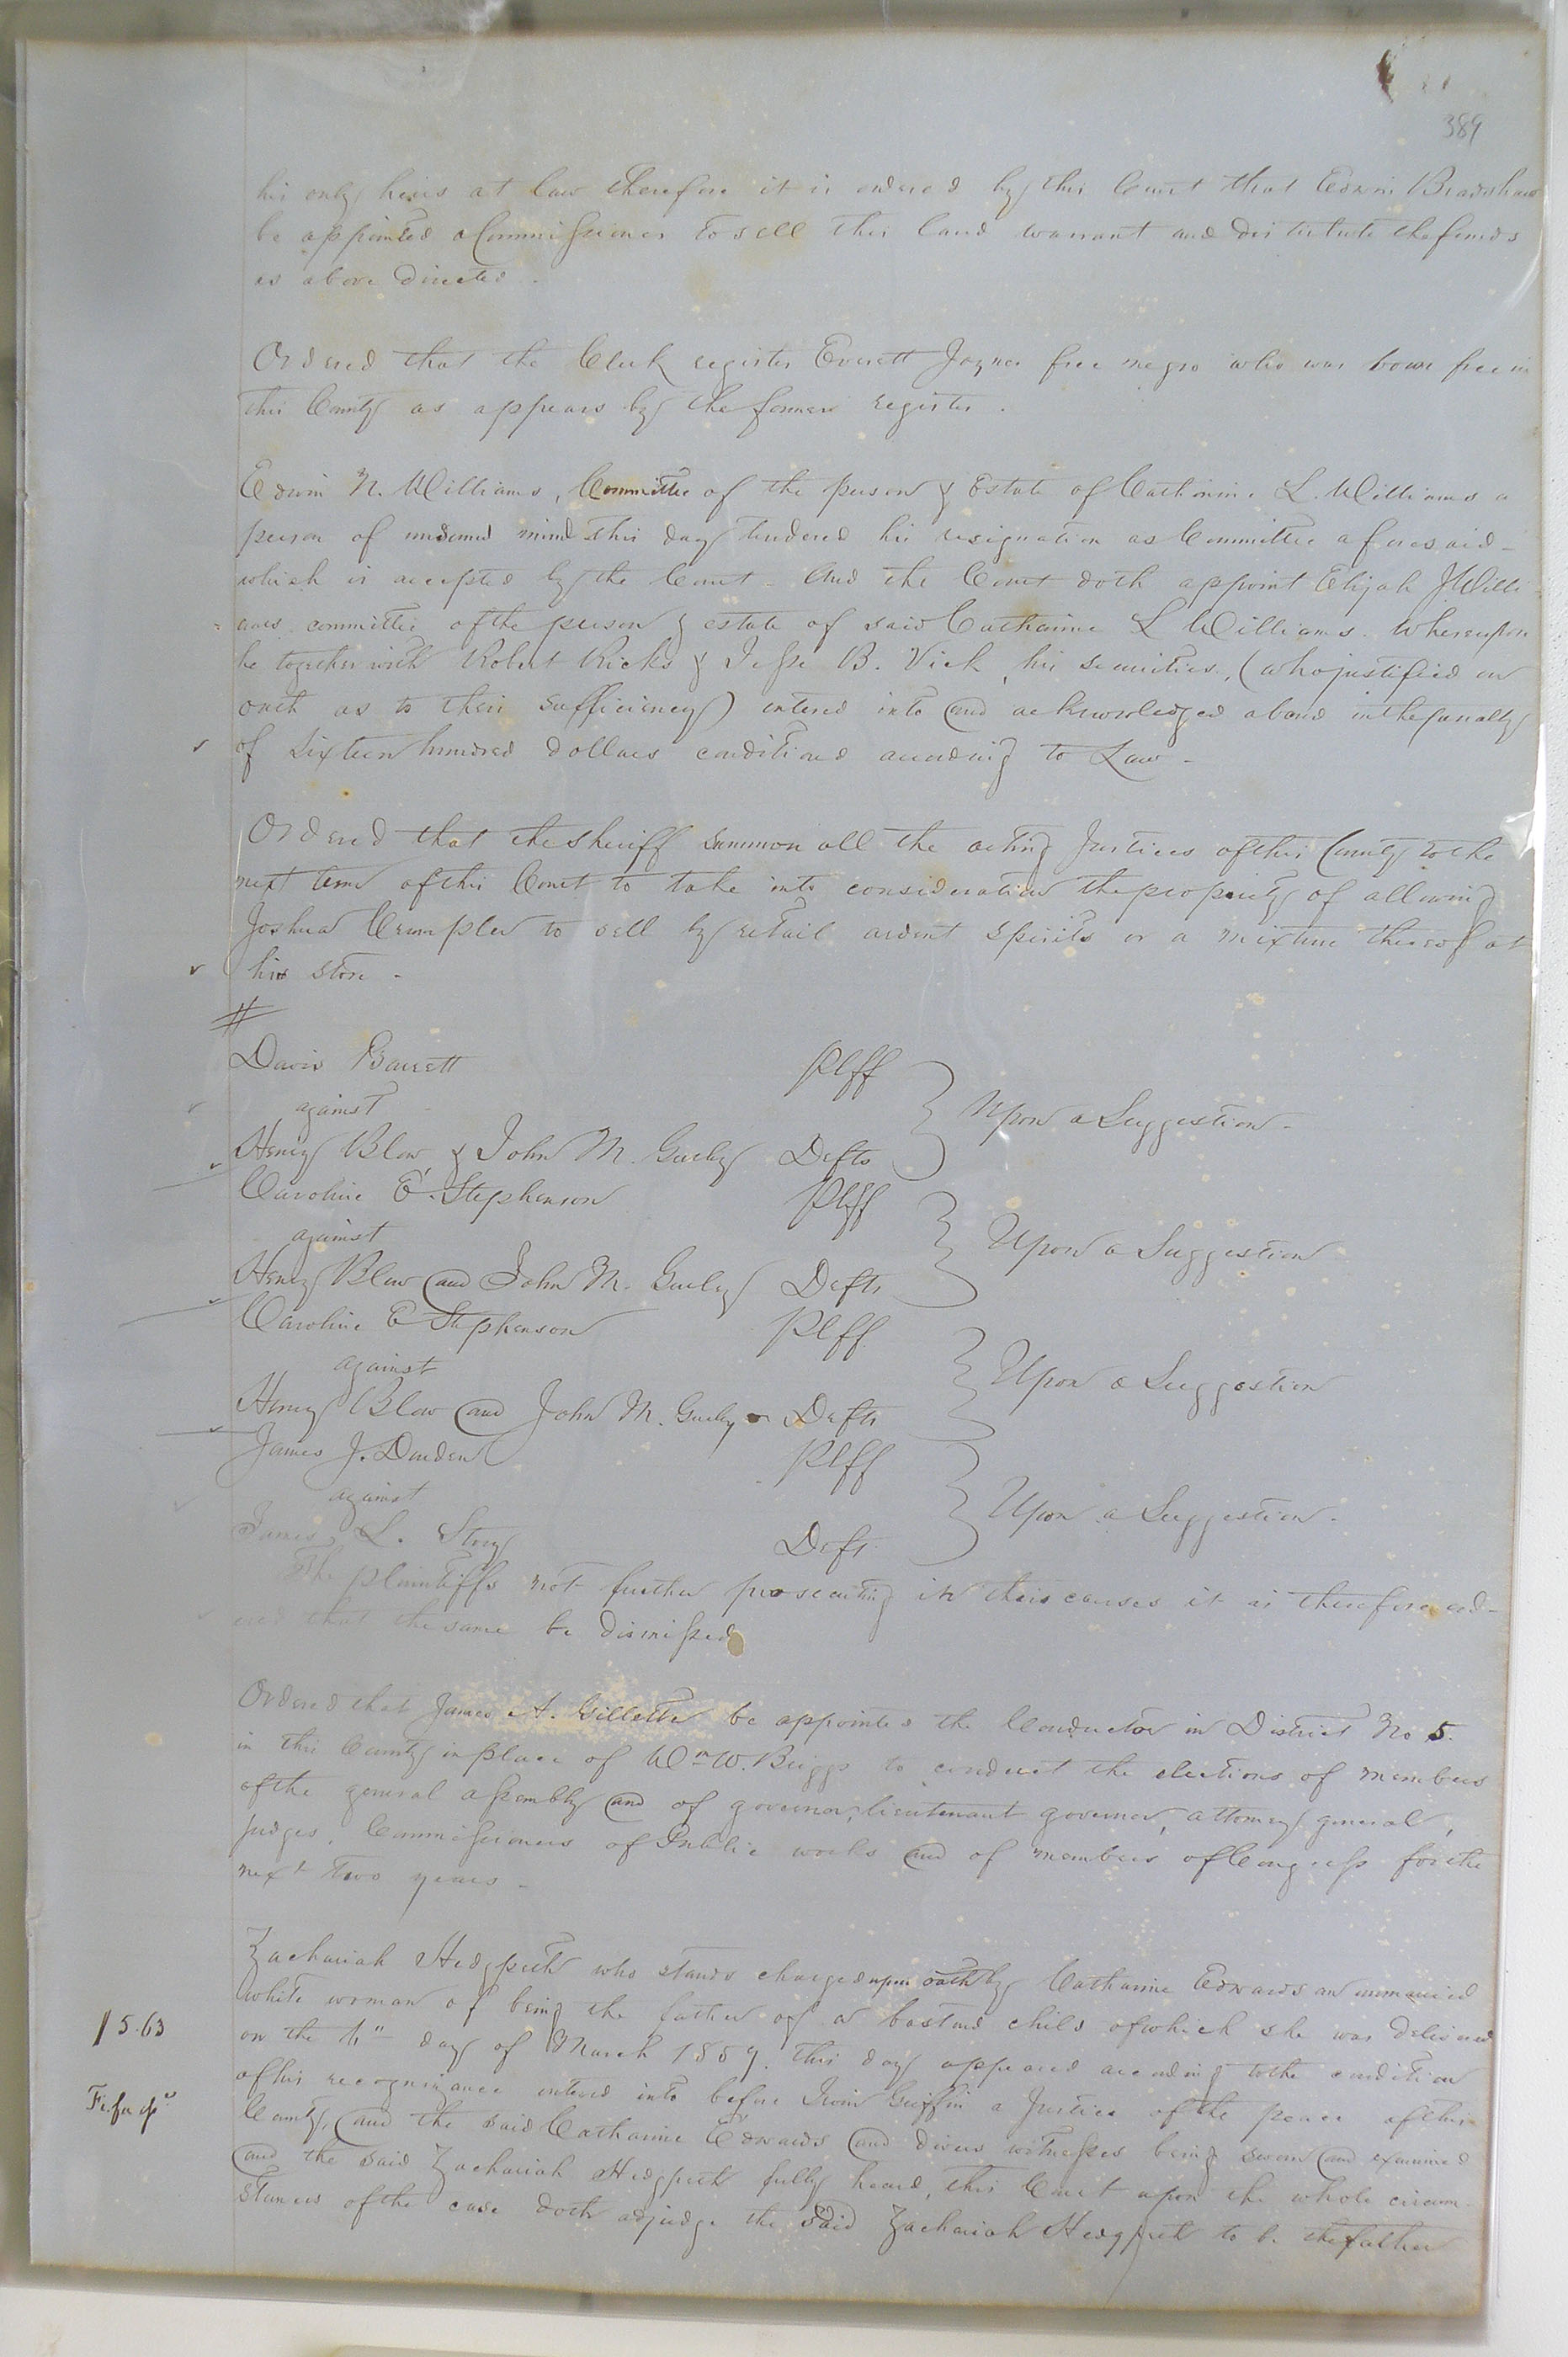 389
his only heirs at law therefore it is ordered by this Court that Edwin Bradshaw
be appointed a Commissioner to sell this land warrant and distribute the funds
as above directed.
Ordered that the Clerk register Everett Joyner free negro who was born free in
this County as appears by the former register.
Edwin N. Williams, Committee of the person & Estate of Catharine L. Williams a
person of unsound mind this day tendered his resignation as Committee aforesaid -
which is accepted by the Court - And the Court doth appoint Elijah J Willi
ams committee of the person & estate of said Catharine L Williams. Whereupon
he together with Robert Ricks & Jesse B. Vick, his securities, (who justified on
oath as to their sufficiency) entered into and acknowledged a bond in the penalty
of sixteen hundred dollars conditioned according to Law -
Ordered that the sheriff summon all the acting Justices of this County to the
next term of this Court to take into consideration the propriety of allowing
Joshua Crumpler to sell by retail ardent spirits or a mixture thereof at
his store -
#
Davis Barrett Plff
against
Upon a Suggestion -
Henry Blow & John M. Gurley Defts
Caroline E. Stephenson Plff
against
Upon a Suggestion
Henry Blow and John M. Gurley Defts
Caroline E Stephenson Plff
against
Upon a Suggestion
Henry Blow and John M. Gurley Defts
James J. Darden Plff
against
Upon a Suggestion -
James L. Story Deft
The plaintiffs not further prosecuting in their causes it is therefore ord-
ered that the same be dismissed
Ordered that James A. Gillette be appointed the Conductor in District No 5.
in this County in place of Wm W. Briggs to conduct the elections of members
of the general assembly and of governor, lieutenant governor, attorney general,
judges, Commissioners of Public works and of members of Congress for the
next two years -
Zachariah Hedgpeth who stands charged upon oath by Catharine Edwards an unmarried
white woman of being the father of a bastard child of which she was delivered
on the day of March 1859. this day appeared according to the condition
15.63
of his recognizance entered into before Irvin Griffin a Justice of the peace of this
Fi.fa
County, and the said Catharine Edwards and divers witnesses being sworn and examined
and the said Zachariah Hedgpeth fully heard, this Court upon the whole circum-
stances of the case doth adjudge the said Zachariah Hedgpeth to be the father